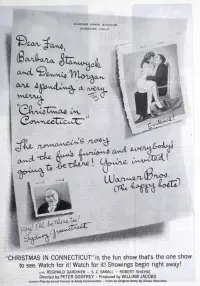 Dear Fans,
Barbara Stanwyck
and Dennis Morgan
are spending a very
merry
"Christmas in
Connecticut"
Evidence!
The romancin's rosy
and the fun's furious and everybody's
going to be there! You're invited!
Warner Bros.
(The happy hosts)
Hey! I'll be there too!
Sydney Greenstreet
"CHRISTMAS IN CONNECTICUT" is the fun show that's the one show
to see. Watch for it! Watch for it! Showings begin right away!
REGINALD GARDINER • S. Z. SAKALL • ROBERT SHAYNE
Directed by PETER GODFREY • Produced by WILLIAM JACOBS